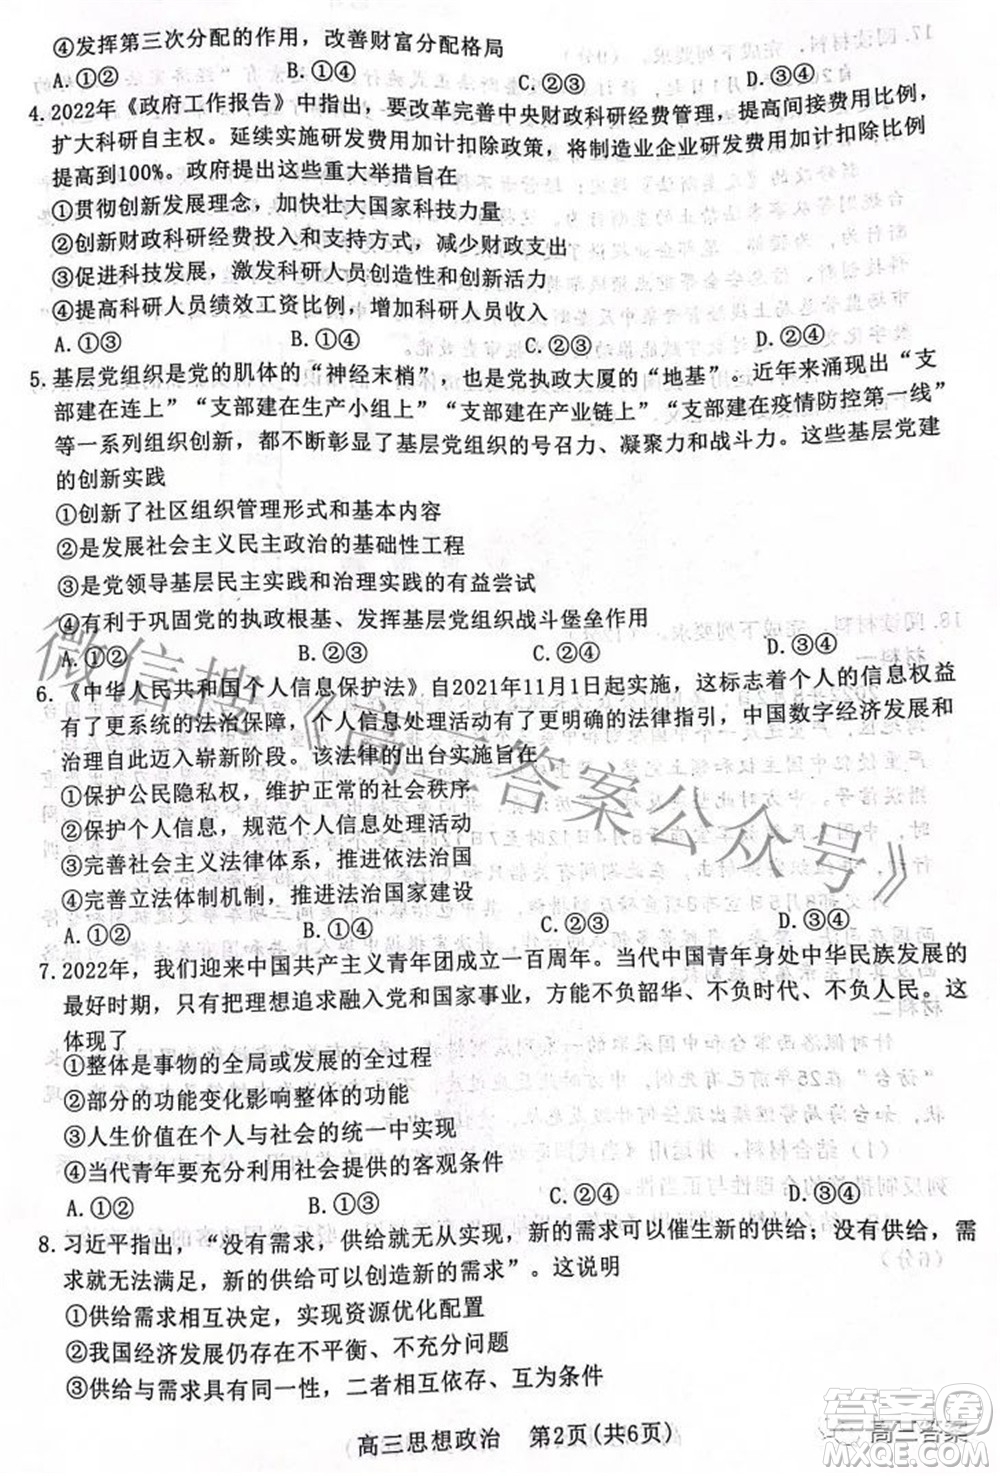 ④发挥第三次分配的作用，改善财富分配格局
A.①② B.①④ C.②③ D.③④
4.2022年《政府工作报告》中指出，要改革完善中央财政科研经费管理，提高间接费用比例，
扩大科研自主权。延续实施研发费用加计扣除政策，将制造业企业研发费用加计扣除比例
提高到100%。政府提出这些重大举措旨在
①贯彻创新发展理念，加快壮大国家科技力量
②创新财政科研经费投入和支持方式，减少财政支出
③促进科技发展，激发科研人员创造性和创新活力
④提高科研人员绩效工资比例，增加科研人员收入
A.①③ B.②③ C.①④ D.②④
5.基层党组织是党的肌体的“神经末梢”，也是党执政大厦的“地基”。近年来涌现出“支
部建在连上”“支部建在生产小组上”“支部建在产业链上”“支部建在疫情防控第一线”
等一系列组织创新，都不断彰显了基层党组织的号召力、凝聚力和战斗力。这些基层党建
的创新实践
①创新了社区组织管理形式和基本内容
②是发展社会主义民主政治的基础性工程
③是党领导基层民主实践和治理实践的有益尝试
④有利于巩固党的执政根基、发挥基层党组织战斗堡垒作用
A.①② B.②③ C.①④ D.③④
6.《中华人民共和国个人信息保护法》自2021年11月1日起实施，这标志着个人的信息权益
有了更系统的法治保障，个人信息处理活动有了更明确的法律指引，中国数字经济发展和
治理自此迈入崭新阶段。该法律的出台实施旨在
①保护公民隐私权，维护正常的社会秩序
②保护个人信息，规范个人信息处理活动
③完善社会主义法律体系，推进依法治国
④完善立法体制机制，推进法治国家建设
A.①② B.①④ C.②③ D.③④
7.2022年，我们迎来中国共产主义青年团成立一百周年。当代中国青年身处中华民族发展的
最好时期，只有把理想追求融入党和国家事业，方能不负韶华、不负时代、不负人民。这
体现了
①整体是事物的全局或发展的全过程
②部分的功能变化影响整体的功能
③人生价值在个人与社会的统一中实现
④当代青年要充分利用社会提供的客观条件
A.①② B.①③ C.②④ D.③④
8.习近平指出，“没有需求，供给就无从实现，新的需求可以催生新的供给；没有供给，需
求就无法满足，新的供给可以创造新的需求”。这说明
①供给需求相互决定，实现资源优化配置
②我国经济发展仍存在不平衡、不充分问题
③供给与需求具有同一性，二者相互依存、互为条件
高三思想政治 第2页(共6页)
微信搜《高三答案公众号》
高三答案